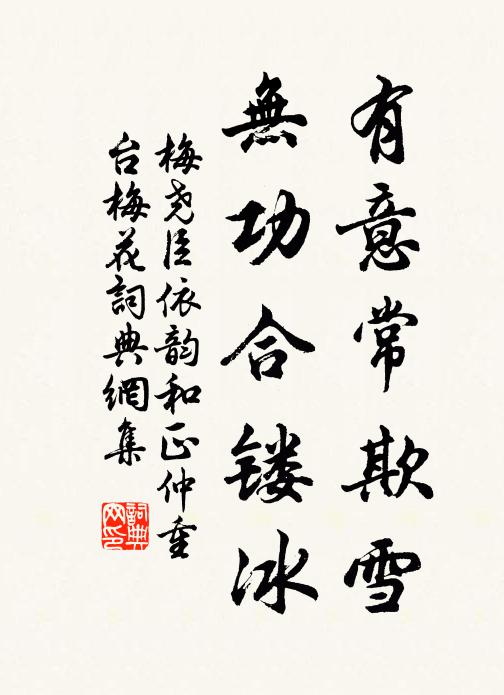 有意常欺雪
無功合镂冰
梅尧臣依韵和正仲重
台梅花詞典網集
詞典
网印